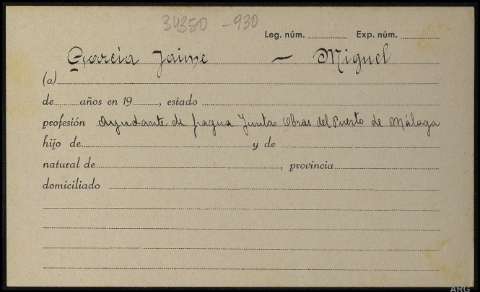 34350 - 930
Leg. núm. Exp. núm.
García Jaime — Miguel
(a)
de años en 19 , estado
profesión Ayudante de fragua Junta Obras del Puerto de Málaga
hijo de y de
natural de , provincia
domiciliado
ARG